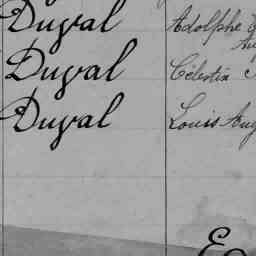 Duval Adolphe
Duval Célestin
Duval Louis Aug
E